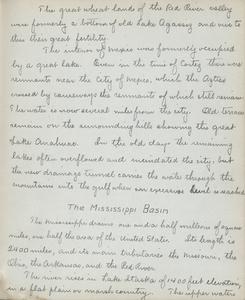 The great wheat lands of the Red River valley
were formerly a bottom of old Lake Agassiz and owe to
this their great fertility.
The interior of Mexico was formerly occupied
by a great lake. Even in the time of Cortez there were
remnants near the city of Mexico, which the Aztecs
crossed by causeways the remnants of which still remain.
The water is now several miles from the city. Old terraces
remain on the surrounding hills showing the great
Lake Anahuac. In the old days the remaining
lakes often overflowed and inundated the city, but
the new drainage tunnel carries the water through the
mountains into the gulf when an excessive level is reached.
The Mississippi Basin
The Mississippi drains one and a half millions of square
miles, or half the area of the United States. Its length is
2400 miles, and its main tributaries the Missouri, the
Ohio, the Arkansas, and the Red River.
The river rises in Lake Itaska of 1400 feet elevation
in a flat plain or marsh country. The upper waters